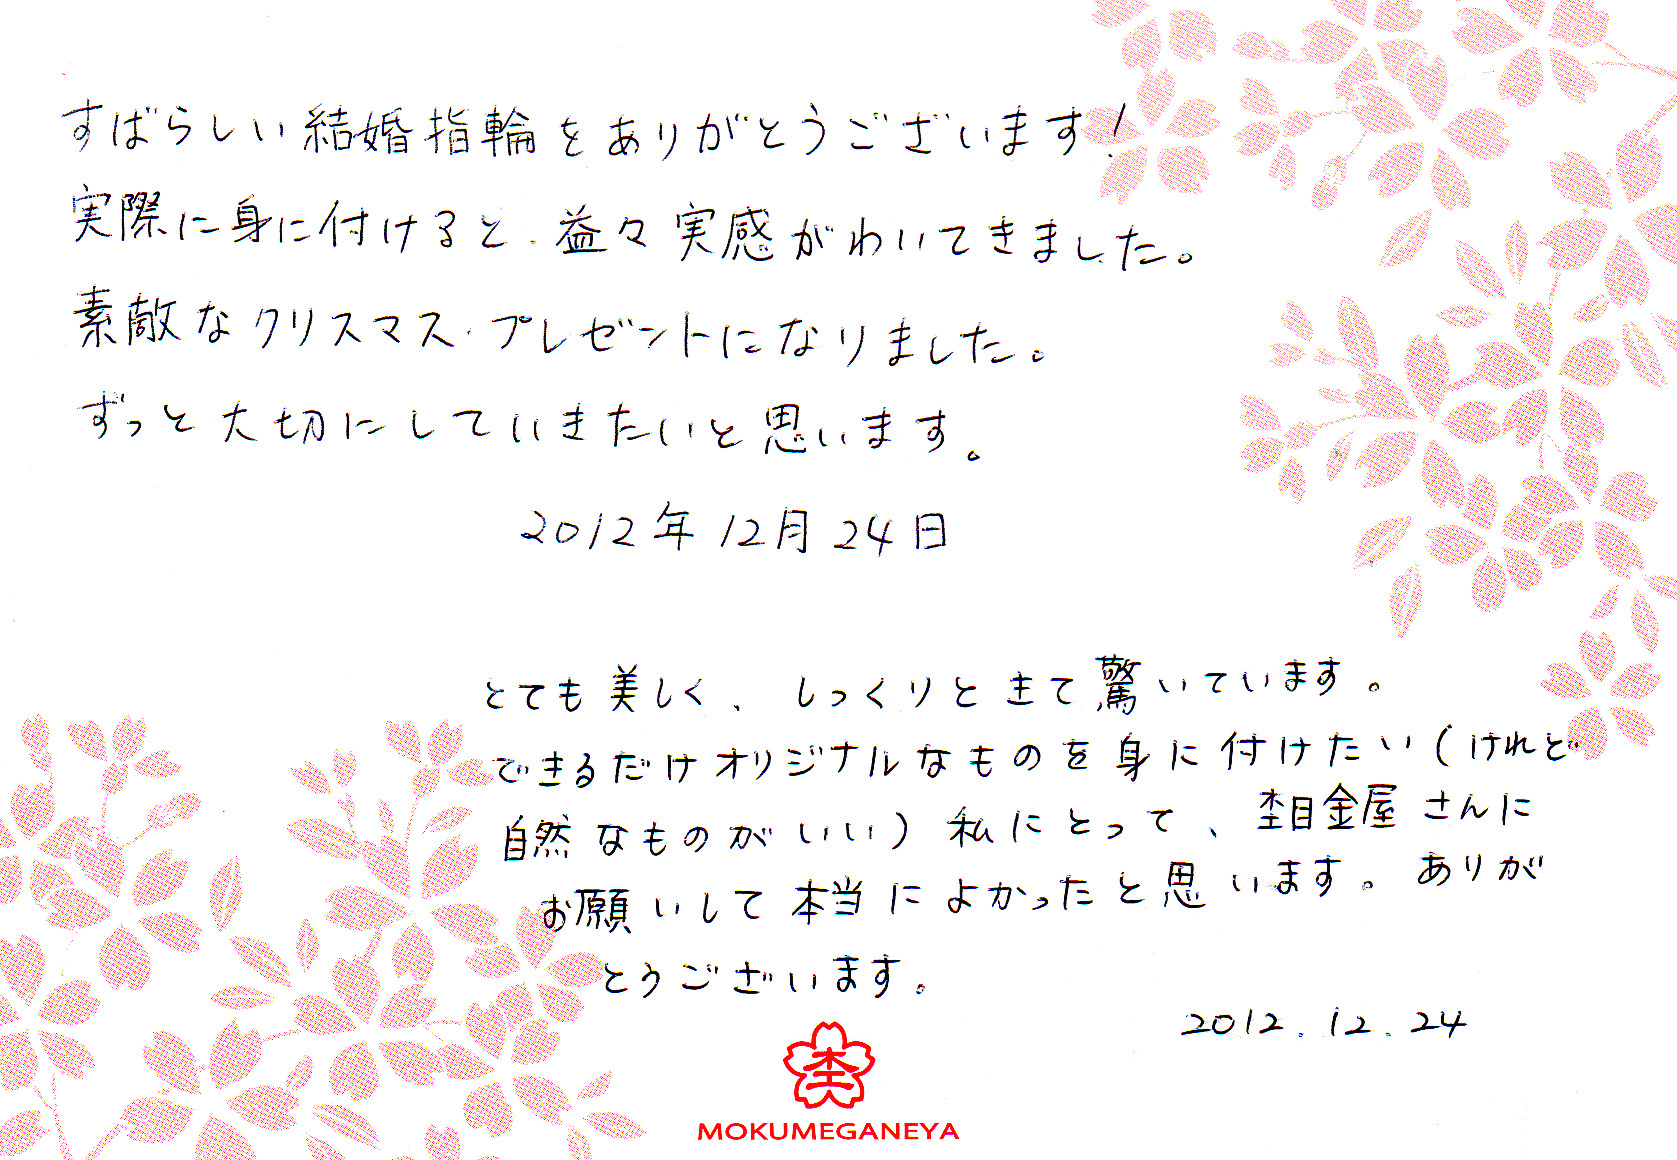 すばらしい結婚指輪をありがとうございます!
実際に身に付けると、益々実感がわいてきました。
素敵なクリスマス・プレゼントになりました。
ずっと大切にしていきたいと思います。
2012年12月24日
とても美しく、しっくりときて驚いています。
できるだけオリジナルなものを身に付けたい(けれど
自然なものがいい)私にとって、杢目金屋さんに
お願いして本当によかったと思います。ありが
とうございます。
2012.12.24
杢
MOKUMEGANEYA